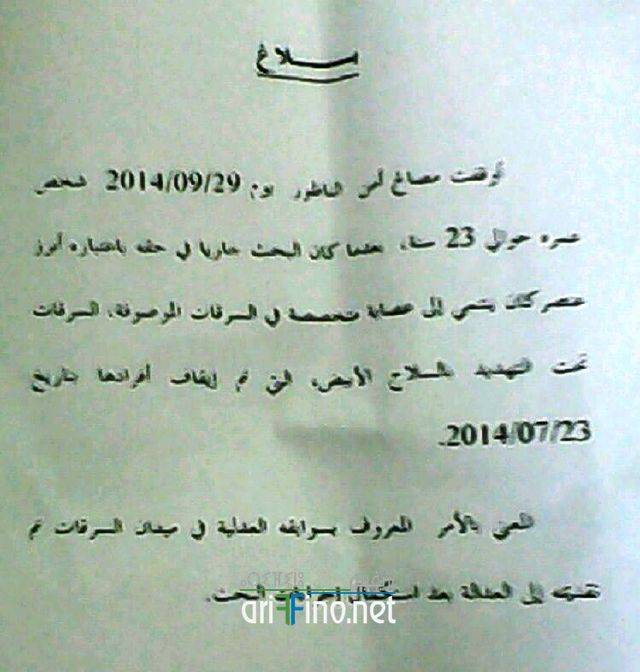 بلاغ
أوقفت مصالح أمن الناظور يوم 2014/09/29 شخص
عمره حوالي 23 سنة، بعدما كان البحث جاريا في حقه باعتباره أبرز
عنصر كان ينتمي إلى عصابة متخصصة في السرقات الموصوفة، السرقات
تحت التهديد بالسلاح الأبيض، التي تم إيقاف أفرادها بتاريخ
2014/07/23.
المعني بالأمر المعروف بسوابقه العدلية في ميدان السرقات تم
تقديمه إلى العدالة بعد استكمال إجراءات البحث.
ariffino.net